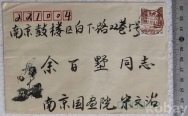 221004
南京鼓楼区白下路22巷5号
余百墅同志
南京国画院宋文治
kobay